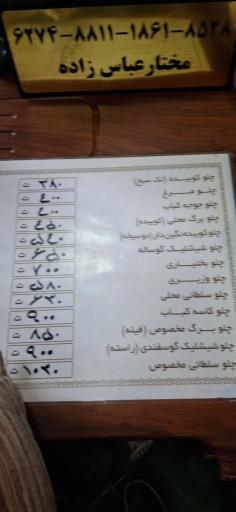 ۶۲۷۴-۸۸۱۱-۱۸۶۱-۸۵۲۸
مختار عباس زاده
چلو کوبیده (تک سیخ) ۳۸۰ ت
چلو مرغ ۴۰۰ ت
چلو جوجه کباب ۴۰۰ ت
چلو برگ محلی (کوبیده) ۴۵۰ ت
چلوکوبیده نگین دار (دوسیخه) ۵۴۰ ت
چلو شیشلیک گوساله ۶۵۰ ت
چلو بختیاری ۷۰۰ ت
چلو وزیری ۵۸۰ ت
چلو سلطانی محلی ۶۳۰ ت
چلو کاسه کباب ۹۰۰ ت
چلو برگ مخصوص (فیله) ۸۵۰ ت
چلو شیشلیک گوسفندی (راسته) ۹۰۰ ت
چلو سلطانی مخصوص ۱۰۳۰ ت